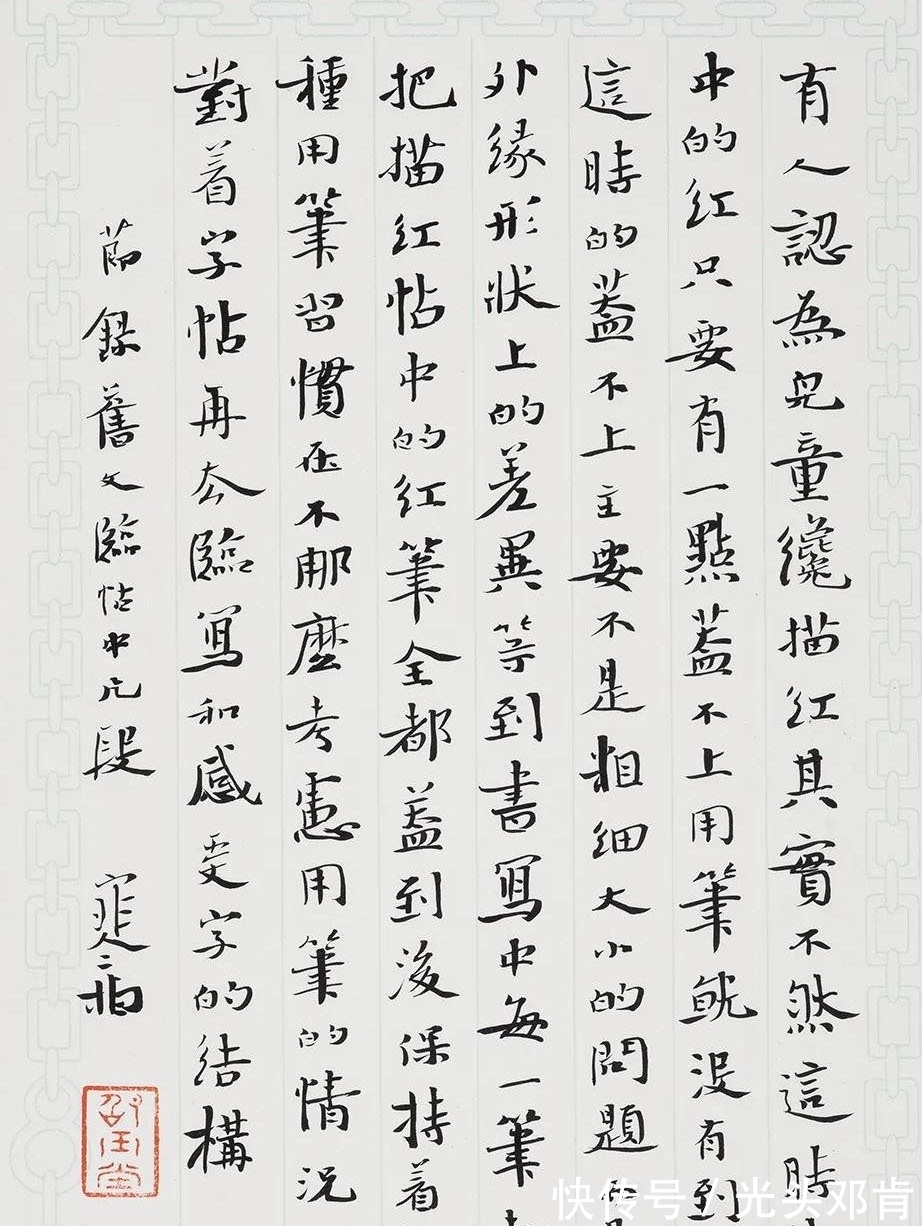 有人認為兒童纔描紅其實不然這時
中的紅只要有一點蓋不上用筆就沒有到
這時的蓋不上主要不是粗細大小的問題
外緣形狀上的差異等到書寫中每一筆
把描紅帖中的紅筆全都蓋到後保持着
種用筆習慣在不那麼考慮用筆的情況
對着字帖再去臨寫和感受字的結構
節錄舊文臨帖中几段
快传号/光头邓肯